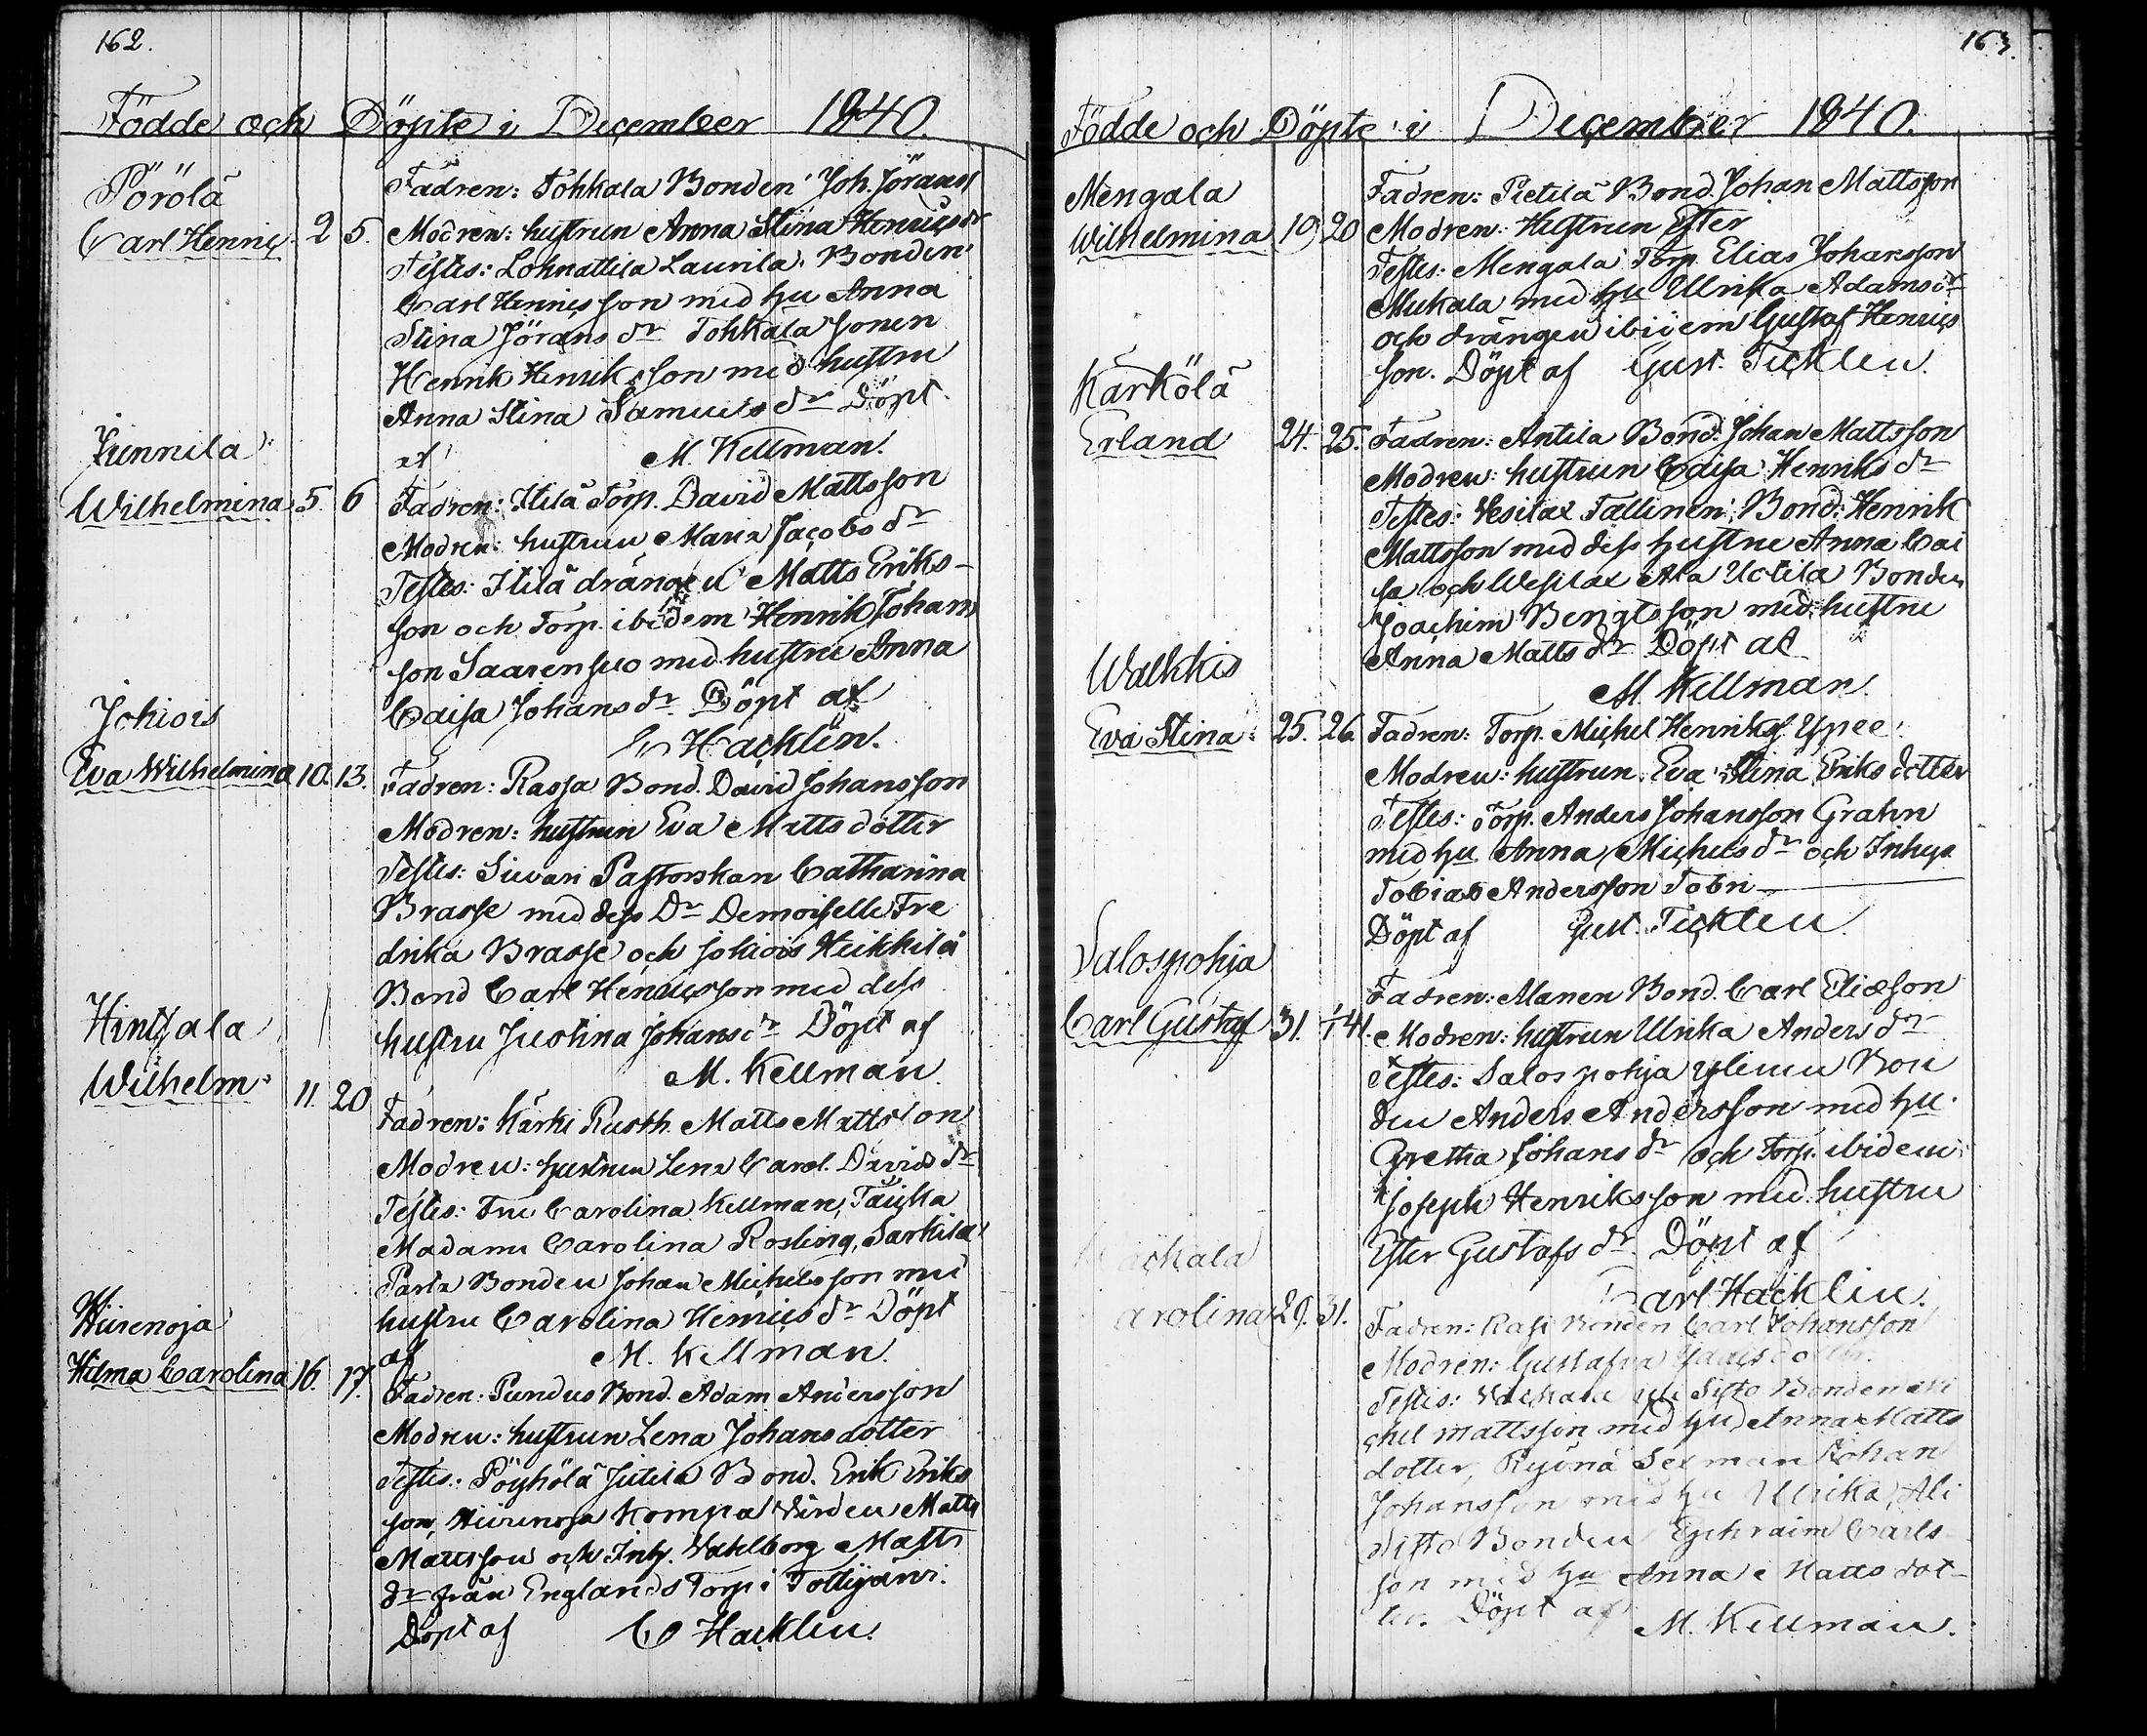 162.
Födde och Döpte i December 1840.
Pörölä
Carl Henric 2 5.
Fadren: Tokkala Bonden Joh. Jöranss
Modren: hustrun Anna Stina Henricsdr
Testes: Loknattila Laurila Bonden
Carl Henricsson med hu Anna
Stina Jöransdr Tokkala Sonen
Henrik Henriksson med hustru
Anna Stina Samuelsdr Döpt
af M. Kellman.
Junnila
Wilhelmina 5. 6
Fadren: Itilä Torp. David Mattsson
Modren: hustrun Maria Jacobsdr
Testes: Itilä drängen Matts Eriks-
son och Torp. ibidem Henrik Johans
son Saarensuo med hustru Anna
Caisa Johansdr. Döpt af
C Hacklin.
Jokiois
Eva Wilhelmina 10. 13.
Fadren: Rassa Bond. David Johansson
Modren: hustrun Eva Mattsdotter
Testes: Siwari Pastorskan Catharina
Brasse med dess Dr Demoiselle Fre
drika Brasse och Jokiois Heikkilä
Bond Carl Henricsson med dess
hustru Justina Johansdr Döpt af
M. Kellman
Hintsala
Wilhelm 11. 20
Fadren: Kärki Rusth. Matts Mattsson
Modren: hustrun Lena Carol. Davidsdr
Testes: Fru Carolina Kellman, Tauska
Madame Carolina Rosling, Sarkila
Parta Bonden Johan Michelsson med
hustru Carolina Henricsdr Döpt
af M. Kellman.
Hiirenoja
Hilma Carolina 16. 17.
Fadren: Pundus Bond. Adam Andersson
Modren: hustrun Lena Johansdotter
Testes: Pöyhölä Jutila Bond. Erik Eriks
son, Hiirenoja Kompa Wärden Matts
Mattsson och Inh. Wahlborg Matts
dr från Englands Torp i Tottijärvi.
Döpt af C Hacklin.
163.
Födde och Döpte i December 1840.
Mengala
Wilhelmina 19 20
Fadren: Pietilä Bond. Johan Mattsson
Modren: Hustrun Ester
Testes: Mengala Torp. Elias Johansson
Mukala med hu Ulrika Adamsdr
och drängen ibidem Gustaf Henrics
son. Döpt af Gust. Ticklen.
Karkölä
Erland 24. 25.
Fadren: Antila Bond. Johan Mattsson
Modren: hustrun Caisa Henriksdr
Testes: Vesilax Tallinen, Bond: Henrik
Mattsson med dess hustru Anna Cai
sa och Wesilax Ala Uotila Bonden
Joachim Bengtsson med hustru
Anna Mattsdr Döpt af
M. Kellman
Walkkis
Eva Stina 25. 26.
Fadren: Torp. Michel Henriks. Ypee.
Modren: hustrun Eva Stina Eriksdotter
Testes: Torp. Anders Johansson Grahn
med hu Anna Michelsdr och Inhys.
Tobias Andersson Tobri
Döpt af Gust. Ticklen
Salospohja
Carl Gustaf 31. 1/1 41.
Fadren: Manen Bond. Carl Eliasson
Modren: hustrun Ulrika Andersdr
Testes: Salospohja Ylinen Bon
den Anders Andersson med hu.
Gretha Johansdr och Torp. ibidem
Joseph Henriksson med hustru
Ester Gustafsdr. Döpt af
Carl Hacklin.
ackala
arolina 29. 31.
Fadren: Rasi Bonden Carl Johansson
Modren: Gustafva
Testes: Sisto Bonden Mi
chel Mattsson med hu Anna Matts
dotter, Johan
Johansson med hu Ulrika, Ali
Sisto Bonden Ephraim Carls
son med hu Anna Mattsdot-
ter. Döpt af M. Kellman.